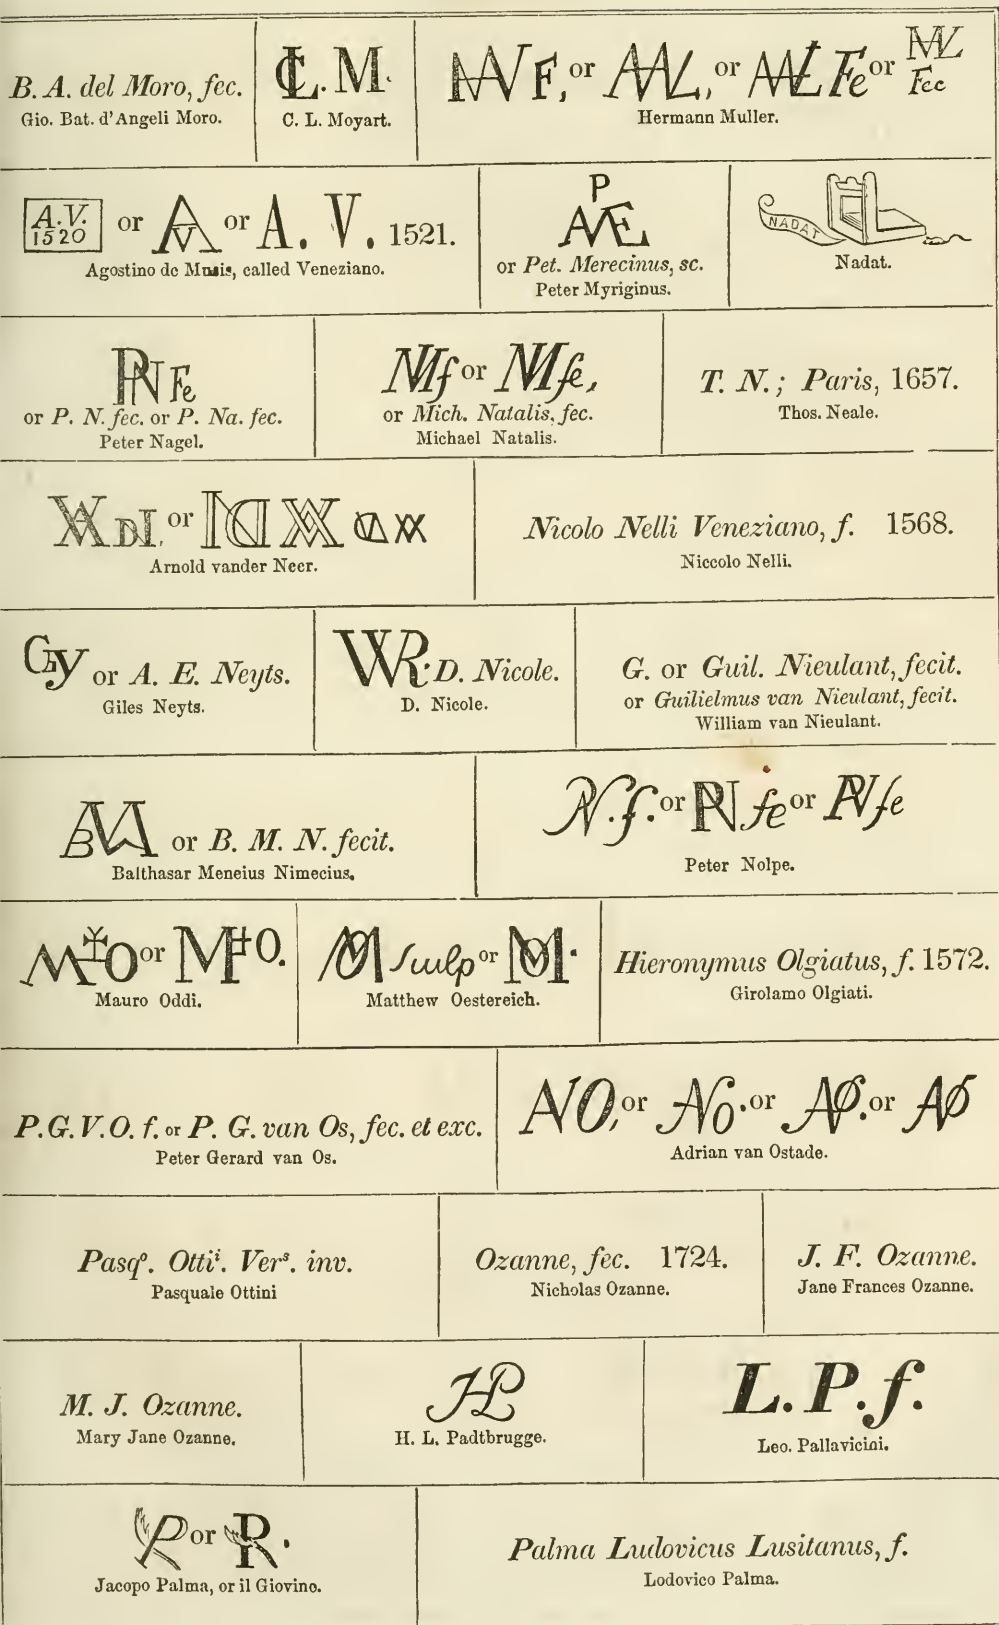 B. A. del Moro, fec.
Gio. Bat. d'Angeli Moro.
C. L. M.
C. L. Moyart.
F, or or Fe or Fec
Hermann Muller.
A.V. 1520 or AV or A. V. 1521.
Agostino de Musis, called Veneziano.
P
or Pet. Merecinus, sc.
Peter Myriginus.
NADAT
Nadat.
PN Fe
or P. N. fec. or P. Na. fec.
Peter Nagel.
NMf or NMfe,
or Mich. Natalis, fec.
Michael Natalis.
T. N.; Paris, 1657.
Thos. Neale.
or
Arnold vander Neer.
Nicolo Nelli Veneziano, f. 1568.
Niccolo Nelli.
Gy or A. E. Neyts.
Giles Neyts.
WR. D. Nicole.
D. Nicole.
G. or Guil. Nieulant, fecit.
or Guilielmus van Nieulant, fecit.
William van Nieulant.
or B. M. N. fecit.
Balthasar Meneius Nimecius.
N. f. or PN fe or PN fe
Peter Nolpe.
M O or M O.
Mauro Oddi.
MO Sculp or MO.
Matthew Oestereich.
Hieronymus Olgiatus, f. 1572.
Girolamo Olgiati.
P. G. V. O. f. or P. G. van Os, fec. et exc.
Peter Gerard van Os.
AVO, or AVo. or AVO. or AVO
Adrian van Ostade.
Pasqo. Ottii. Vers. inv.
Pasquale Ottini
Ozanne, fec. 1724.
Nicholas Ozanne.
J. F. Ozanne.
Jane Frances Ozanne.
M. J. Ozanne.
Mary Jane Ozanne.
HLP
H. L. Padtbrugge.
L. P. f.
Leo. Pallavicini.
P or P.
Jacopo Palma, or il Giovino.
Palma Ludovicus Lusitanus, f.
Lodovico Palma.